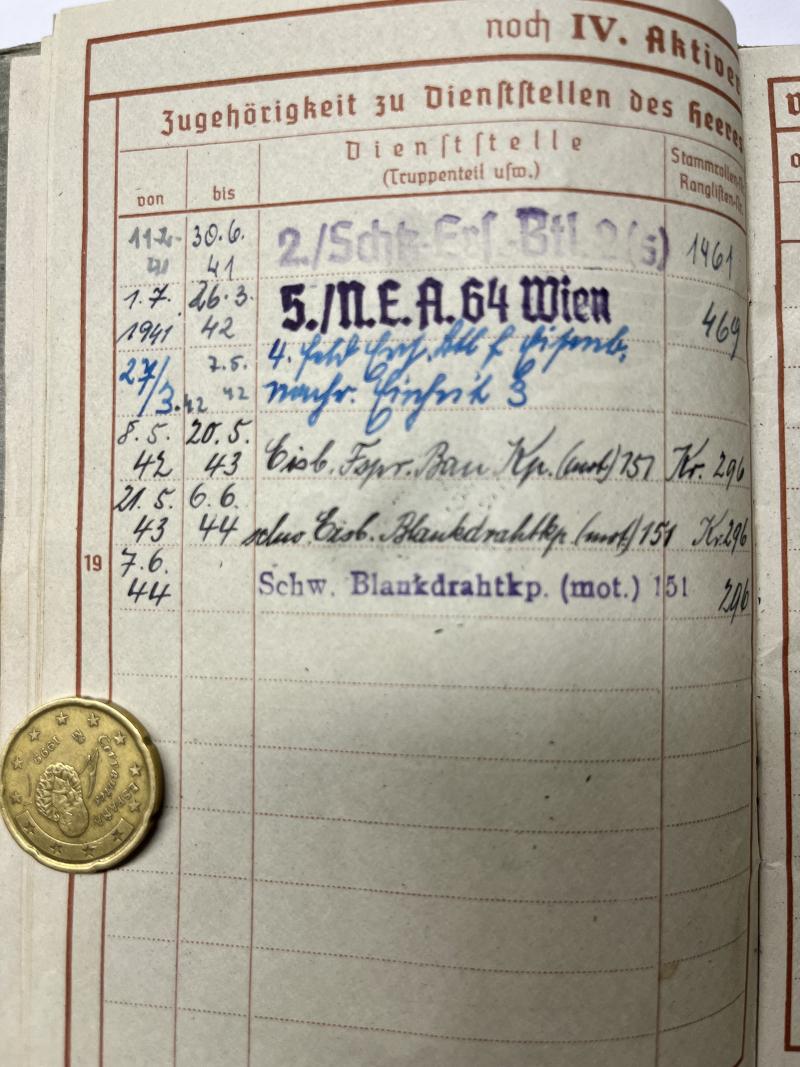 noch IV. Aktiver
Zugehörigkeit zu Dienststellen des Heeres
von
bis
Dienststelle
(Truppenteil usw.)
Stammrollen-
Ranglisten-
11.2. 41
30.6. 41
2./Schtz.Ers.-Btl. 2(s)
1461
1.7. 1941
26.3. 42
5./N.E.A. 64 Wien
469
27/3.42
7.5. 42
4. Feld Ers. Abt f Eisenb.
nachr. Einheit 3
8.5. 42
20.5. 43
Eisb. Fspr. Bau Kp. (mot) 151
Kr. 296
21.5. 43
6.6. 44
schw. Eisb. Blankdrahtkp. (mot) 151
Kr. 296
19
7.6. 44
Schw. Blankdrahtkp. (mot.) 151
296
ESPAÑA
Cervantes
1999